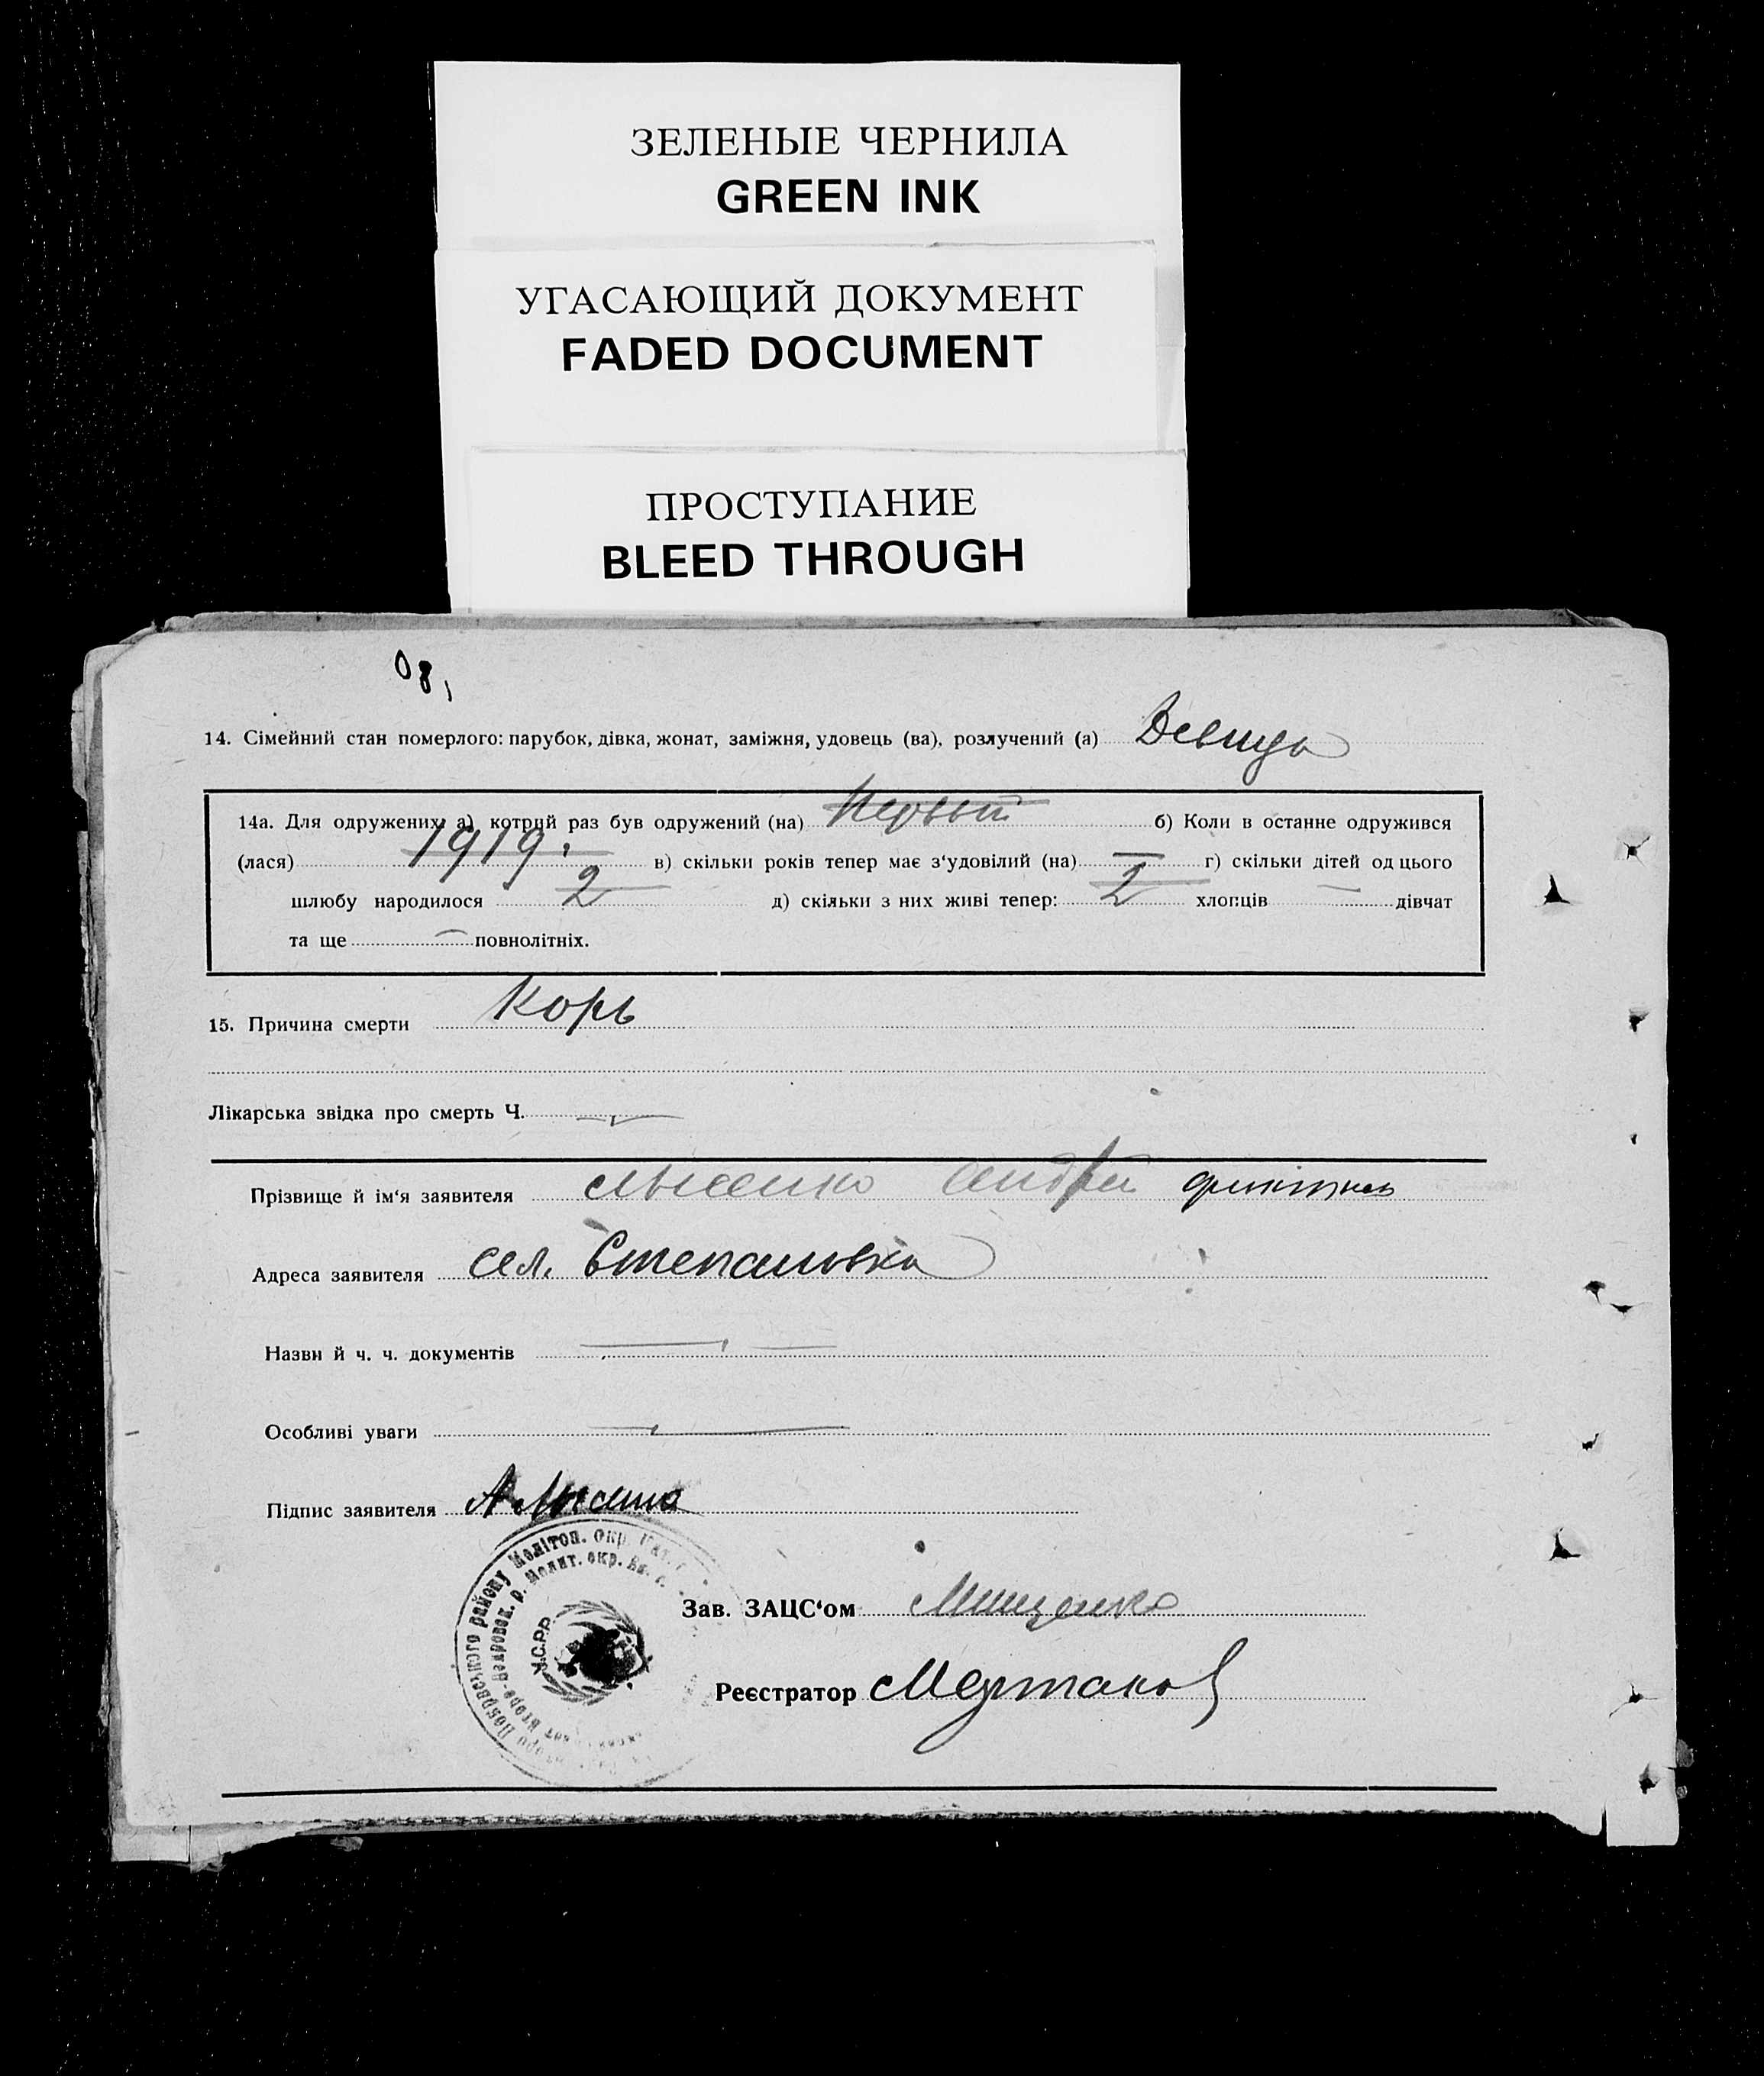 ЗЕЛЕНЫЕ ЧЕРНИЛА
GREEN INK
УГАСАЮЩИЙ ДОКУМЕНТ
FADED DOCUMENT
ПРОСТУПАНИЕ
BLEED THROUGH
14. Сімейний стан померлого: парубок, дівка, жонат, заміжня, удовець (ва), розлучений (а) Девица
14а. Для одружених: а) котрий раз був одружений (на) Первый б) Коли в останне одружився
(лася) 1919. в) скільки років тепер має з‘удовілий (на) — г) скільки дітей од цього
шлюбу народилося 2 д) скільки з них живі тепер: 2 хлопців — дівчат
та ще — повнолітніх.
15. Причина смерти Корь
Лікарська звідка про смерть Ч. —
Прізвище й ім‘я заявителя Лысенко Андрей
Адреса заявителя сел. Степановка
Назви й ч. ч. документів —
Особливі уваги —
Підпис заявителя А Лысенко
району Мелітоп. окр.
р. Мелит. окр.
У.С.Р.Р.
Зав. ЗАЦС‘ом Мищенко
Реєстратор